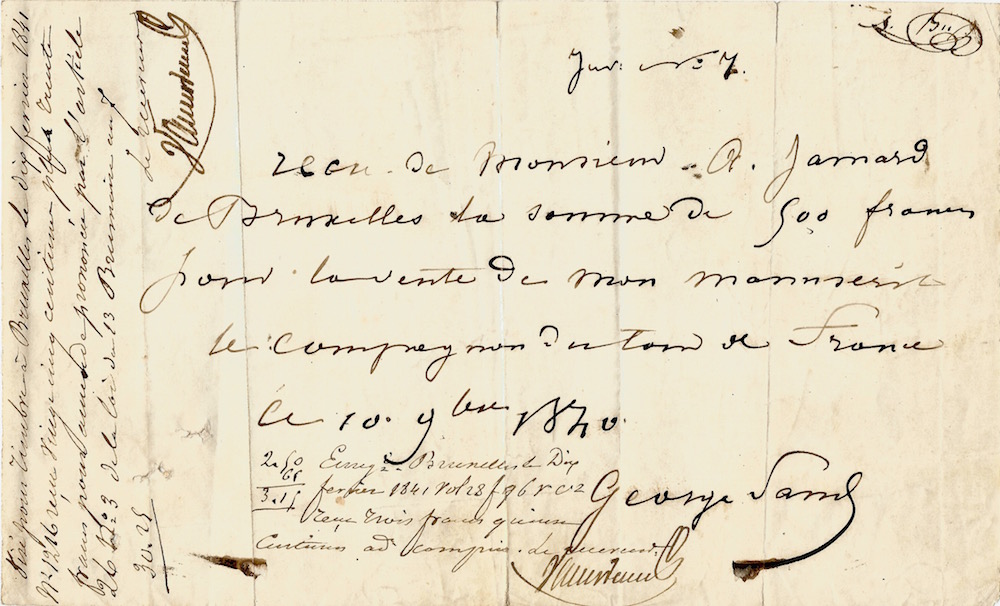 Inv. No 7.
recu de Monsieur A. Jamard
de Bruxelles la somme de 500 francs
pour la vente de mon manuscrit
le compagnon du tour de France
Ce 10. 9bre 1840.
George Sand
2.50
65
3.15
Enregé. Bruxelles le Dix
fevrier 1841 Vol 28 f 96 V C 2
reçu trois francs quinze
Centimes add. compris. le receveur.
Visé pour timbre à Bruxelles le dix fevrier 1841
No 1216 reçu vingt cinq centimes plus trente
francs pour l'amende prononcée par l'article
26 No 3 de la loi du 13 Brumaire an 7
30.25
Le Receveur